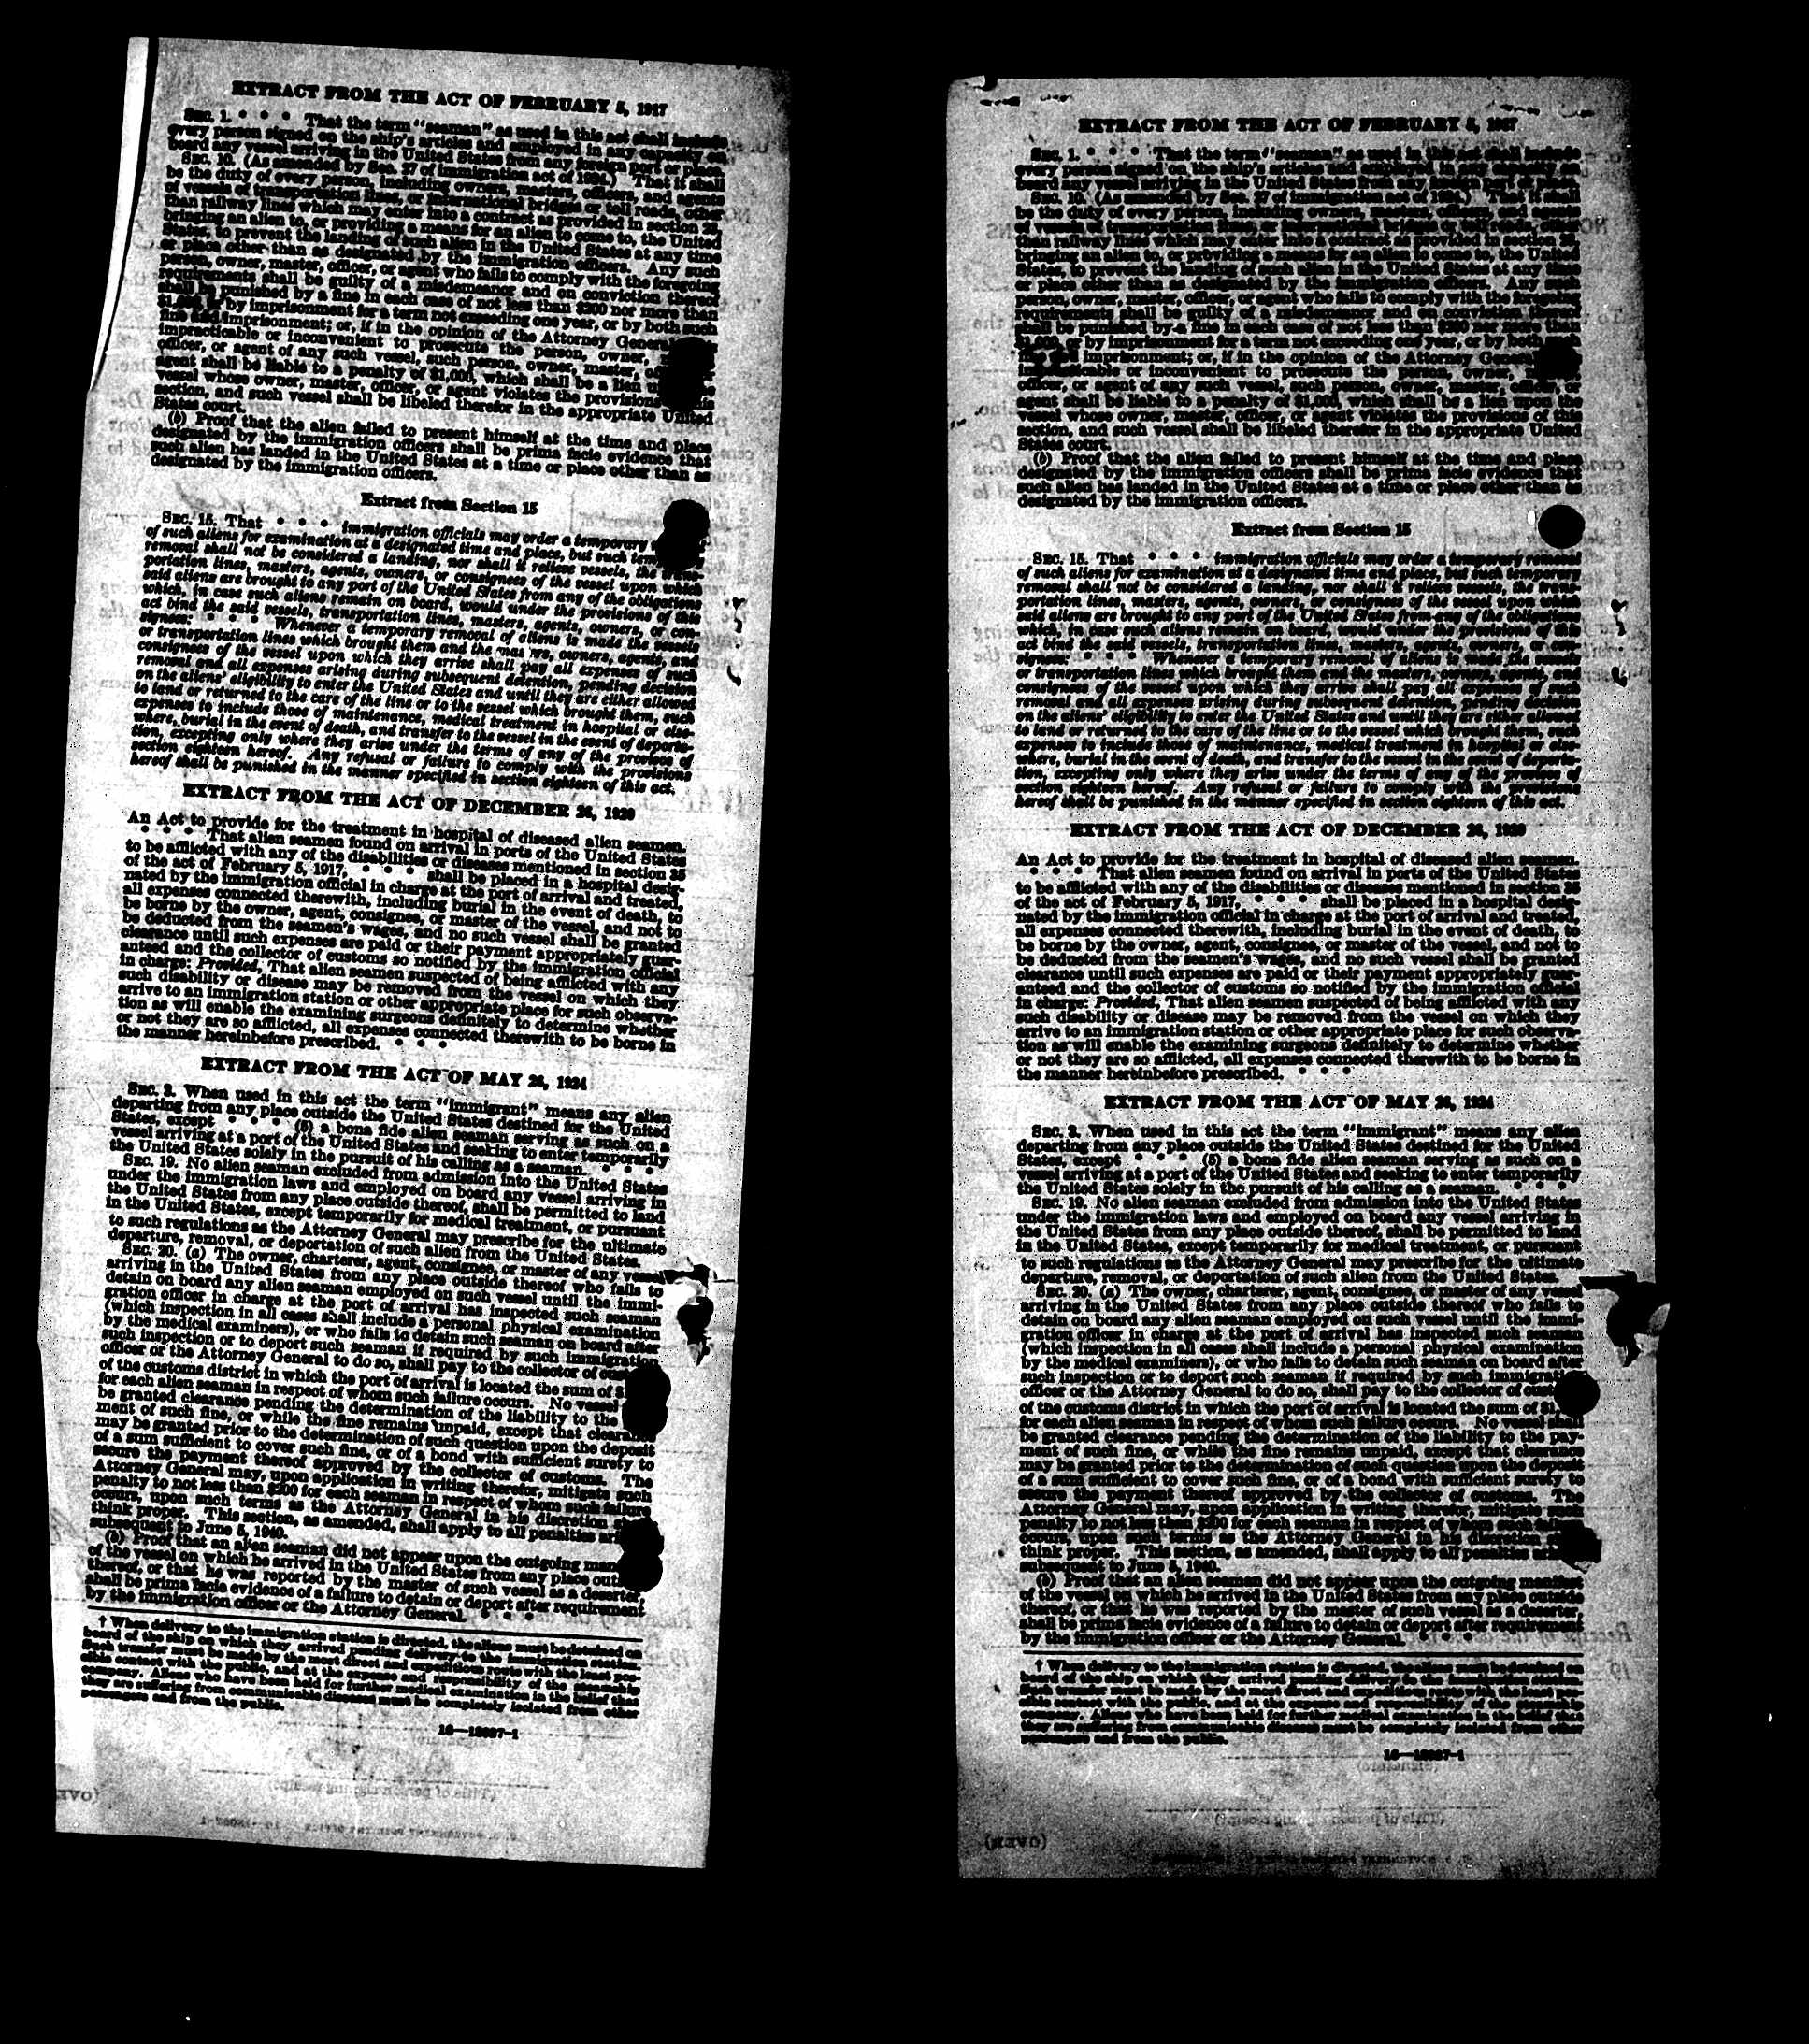 EXTRACT FROM THE ACT OF FEBRUARY 5, 1917
SEC. 1. * * * That the term "seaman" as used in this act shall include
every person signed on the ship's articles and employed in any capacity on
board any vessel arriving in the United States from any foreign port or place.
SEC. 10. (As amended by Sec. 27 of immigration act of 1924.) That it shall
be the duty of every person, including owners, masters, officers, and agents
of vessels of transportation lines, or international bridges or toll roads, other
than railway lines which may enter into a contract as provided in section 23,
bringing an alien to, or providing a means for an alien to come to, the United
States, to prevent the landing of such alien in the United States at any time
or place other than as designated by the immigration officers. Any such
person, owner, master, officer, or agent who fails to comply with the foregoing
requirements shall be guilty of a misdemeanor and on conviction thereof
shall be punished by a fine in each case of not less than $200 nor more than
$1,000, or by imprisonment for a term not exceeding one year, or by both such
fine and imprisonment; or, if in the opinion of the Attorney General
impracticable or inconvenient to prosecute the person, owner,
officer, or agent of any such vessel, such person, owner, master,
agent shall be liable to a penalty of $1,000, which shall be a lien
vessel whose owner, master, officer, or agent violates the provisions
section, and such vessel shall be libeled therefor in the appropriate United
States court.
(b) Proof that the alien failed to present himself at the time and place
designated by the immigration officers shall be prima facie evidence that
such alien has landed in the United States at a time or place other than as
designated by the immigration officers.
Extract from Section 15
SEC. 15. That * * * immigration officials may order a temporary
of such aliens for examination at a designated time and place, but such
removal shall not be considered a landing, nor shall it relieve vessels, the trans-
portation lines, masters, agents, owners, or consignees of the vessel upon which
said aliens are brought to any port of the United States from any of the obligations
which, in case such aliens remain on board, would under the provisions of this
act bind the said vessels, transportation lines, masters, agents, owners, or con-
signees: * * * Whenever a temporary removal of aliens is made the vessels
or transportation lines which brought them and the masters, owners, agents, and
consignees of the vessel upon which they arrive shall pay all expenses of such
removal and all expenses arising during subsequent detention, pending decision
on the aliens' eligibility to enter the United States and until they are either allowed
to land or returned to the care of the line or to the vessel which brought them, such
expenses to include those of maintenance, medical treatment in hospital or else-
where, burial in the event of death, and transfer to the vessel in the event of deporta-
tion, excepting only where they arise under the terms of any of the provisos of
section eighteen hereof. Any refusal or failure to comply with the provisions
hereof shall be punished in the manner specified in section eighteen of this act.
EXTRACT FROM THE ACT OF DECEMBER 26, 1920
An Act to provide for the treatment in hospital of diseased alien seamen.
* * * That alien seamen found on arrival in ports of the United States
to be afflicted with any of the disabilities or diseases mentioned in section 35
of the act of February 5, 1917, * * * shall be placed in a hospital desig-
nated by the immigration official in charge at the port of arrival and treated,
all expenses connected therewith, including burial in the event of death, to
be borne by the owner, agent, consignee, or master of the vessel, and not to
be deducted from the seamen's wages, and no such vessel shall be granted
clearance until such expenses are paid or their payment appropriately guar-
anteed and the collector of customs so notified by the immigration official
in charge: Provided, That alien seamen suspected of being afflicted with any
such disability or disease may be removed from the vessel on which they
arrive to an immigration station or other appropriate place for such observa-
tion as will enable the examining surgeons definitely to determine whether
or not they are so afflicted, all expenses connected therewith to be borne in
the manner hereinbefore prescribed. * * *
EXTRACT FROM THE ACT OF MAY 26, 1924
SEC. 3. When used in this act the term "immigrant" means any alien
departing from any place outside the United States destined for the United
States, except * * * (5) a bona fide alien seaman serving as such on a
vessel arriving at a port of the United States and seeking to enter temporarily
the United States solely in the pursuit of his calling as a seaman. * * *
SEC. 19. No alien seaman excluded from admission into the United States
under the immigration laws and employed on board any vessel arriving in
the United States from any place outside thereof, shall be permitted to land
in the United States, except temporarily for medical treatment, or pursuant
to such regulations as the Attorney General may prescribe for the ultimate
departure, removal, or deportation of such alien from the United States.
SEC. 20. (a) The owner, charterer, agent, consignee, or master of any vessel
arriving in the United States from any place outside thereof who fails to
detain on board any alien seaman employed on such vessel until the immi-
gration officer in charge at the port of arrival has inspected such seaman
(which inspection in all cases shall include a personal physical examination
by the medical examiners), or who fails to detain such seaman on board after
such inspection or to deport such seaman if required by such immigration
officer or the Attorney General to do so, shall pay to the collector of
of the customs district in which the port of arrival is located the sum of
for each alien seaman in respect of whom such failure occurs. No vessel
be granted clearance pending the determination of the liability to the
ment of such fine, or while the fine remains unpaid, except that clearance
may be granted prior to the determination of such question upon the deposit
of a sum sufficient to cover such fine, or of a bond with sufficient surety to
secure the payment thereof approved by the collector of customs. The
Attorney General may, upon application in writing therefor, mitigate such
penalty to not less than $200 for each seaman in respect of whom such failure
occurs, upon such terms as the Attorney General in his discretion
think proper. This section, as amended, shall apply to all penalties
subsequent to June 5, 1940.
(b) Proof that an alien seaman did not appear upon the outgoing
of the vessel on which he arrived in the United States from any place
thereof, or that he was reported by the master of such vessel as a deserter,
shall be prima facie evidence of a failure to detain or deport after requirement
by the immigration officer or the Attorney General. * * *
† When delivery to the immigration station is directed, the aliens must be detained on
board of the ship on which they arrived pending delivery to the immigration station.
Such transfer must be made by the most direct and expeditious route with the least pos-
sible contact with the public, and at the expense and responsibility of the steamship
company. Aliens who have been held for further medical examination in the belief that
they are suffering from communicable diseases must be completely isolated from other
passengers and from the public.
16—12087-1
EXTRACT FROM THE ACT OF FEBRUARY 5, 1917
SEC. 1. * * * That the term "seaman" as used in this act shall include
every person signed on the ship's articles and employed in any capacity on
board any vessel arriving in the United States from any foreign port or place.
SEC. 10. (As amended by Sec. 27 of immigration act of 1924.) That it shall
be the duty of every person, including owners, masters, officers, and agents
of vessels of transportation lines, or international bridges or toll roads, other
than railway lines which may enter into a contract as provided in section 23,
bringing an alien to, or providing a means for an alien to come to, the United
States, to prevent the landing of such alien in the United States at any time
or place other than as designated by the immigration officers. Any such
person, owner, master, officer, or agent who fails to comply with the foregoing
requirements shall be guilty of a misdemeanor and on conviction thereof
shall be punished by a fine in each case of not less than $200 nor more than
$1,000, or by imprisonment for a term not exceeding one year, or by both such
imprisonment; or, if in the opinion of the Attorney General
or inconvenient to prosecute the person, owner,
officer, or agent of any such vessel, such person, owner, master, officer, or
agent shall be liable to a penalty of $1,000, which shall be a lien upon the
vessel whose owner, master, officer, or agent violates the provisions of this
section, and such vessel shall be libeled therefor in the appropriate United
States court.
(b) Proof that the alien failed to present himself at the time and place
designated by the immigration officers shall be prima facie evidence that
such alien has landed in the United States at a time or place other than as
designated by the immigration officers.
Extract from Section 15
SEC. 15. That * * * immigration officials may order a temporary removal
of such aliens for examination at a designated time and place, but such temporary
removal shall not be considered a landing, nor shall it relieve vessels, the trans-
portation lines, masters, agents, owners, or consignees of the vessel upon which
said aliens are brought to any port of the United States from any of the obligations
which, in case such aliens remain on board, would under the provisions of this
act bind the said vessels, transportation lines, masters, agents, owners, or con-
signees: * * * Whenever a temporary removal of aliens is made the vessels
or transportation lines which brought them and the masters, owners, agents, and
consignees of the vessel upon which they arrive shall pay all expenses of such
removal and all expenses arising during subsequent detention, pending decision
on the aliens' eligibility to enter the United States and until they are either allowed
to land or returned to the care of the line or to the vessel which brought them, such
expenses to include those of maintenance, medical treatment in hospital or else-
where, burial in the event of death, and transfer to the vessel in the event of deporta-
tion, excepting only where they arise under the terms of any of the provisos of
section eighteen hereof. Any refusal or failure to comply with the provisions
hereof shall be punished in the manner specified in section eighteen of this act.
EXTRACT FROM THE ACT OF DECEMBER 26, 1920
An Act to provide for the treatment in hospital of diseased alien seamen.
* * * That alien seamen found on arrival in ports of the United States
to be afflicted with any of the disabilities or diseases mentioned in section 35
of the act of February 5, 1917, * * * shall be placed in a hospital desig-
nated by the immigration official in charge at the port of arrival and treated,
all expenses connected therewith, including burial in the event of death, to
be borne by the owner, agent, consignee, or master of the vessel, and not to
be deducted from the seamen's wages, and no such vessel shall be granted
clearance until such expenses are paid or their payment appropriately guar-
anteed and the collector of customs so notified by the immigration official
in charge: Provided, That alien seamen suspected of being afflicted with any
such disability or disease may be removed from the vessel on which they
arrive to an immigration station or other appropriate place for such observa-
tion as will enable the examining surgeons definitely to determine whether
or not they are so afflicted, all expenses connected therewith to be borne in
the manner hereinbefore prescribed. * * *
EXTRACT FROM THE ACT OF MAY 26, 1924
SEC. 3. When used in this act the term "immigrant" means any alien
departing from any place outside the United States destined for the United
States, except * * * (5) a bona fide alien seaman serving as such on a
vessel arriving at a port of the United States and seeking to enter temporarily
the United States solely in the pursuit of his calling as a seaman. * * *
SEC. 19. No alien seaman excluded from admission into the United States
under the immigration laws and employed on board any vessel arriving in
the United States from any place outside thereof, shall be permitted to land
in the United States, except temporarily for medical treatment, or pursuant
to such regulations as the Attorney General may prescribe for the ultimate
departure, removal, or deportation of such alien from the United States.
SEC. 20. (a) The owner, charterer, agent, consignee, or master of any vessel
arriving in the United States from any place outside thereof who fails to
detain on board any alien seaman employed on such vessel until the immi-
gration officer in charge at the port of arrival has inspected such seaman
(which inspection in all cases shall include a personal physical examination
by the medical examiners), or who fails to detain such seaman on board after
such inspection or to deport such seaman if required by such immigration
officer or the Attorney General to do so, shall pay to the collector of
of the customs district in which the port of arrival is located the sum of
for each alien seaman in respect of whom such failure occurs. No vessel shall
be granted clearance pending the determination of the liability to the pay-
ment of such fine, or while the fine remains unpaid, except that clearance
may be granted prior to the determination of such question upon the deposit
of a sum sufficient to cover such fine, or of a bond with sufficient surety to
secure the payment thereof approved by the collector of customs. The
Attorney General may, upon application in writing therefor, mitigate such
penalty to not less than $200 for each seaman in respect of whom such failure
occurs, upon such terms as the Attorney General in his discretion
think proper. This section, as amended, shall apply to all penalties
subsequent to June 5, 1940.
(b) Proof that an alien seaman did not appear upon the outgoing manifest
of the vessel on which he arrived in the United States from any place outside
thereof, or that he was reported by the master of such vessel as a deserter,
shall be prima facie evidence of a failure to detain or deport after requirement
by the immigration officer or the Attorney General. * * *
† When delivery to the immigration station is directed, the aliens must be detained on
board of the ship on which they arrived pending delivery to the immigration station.
Such transfer must be made by the most direct and expeditious route with the least pos-
sible contact with the public, and at the expense and responsibility of the steamship
company. Aliens who have been held for further medical examination in the belief that
they are suffering from communicable diseases must be completely isolated from other
passengers and from the public.
16—12087-1
(OVER)